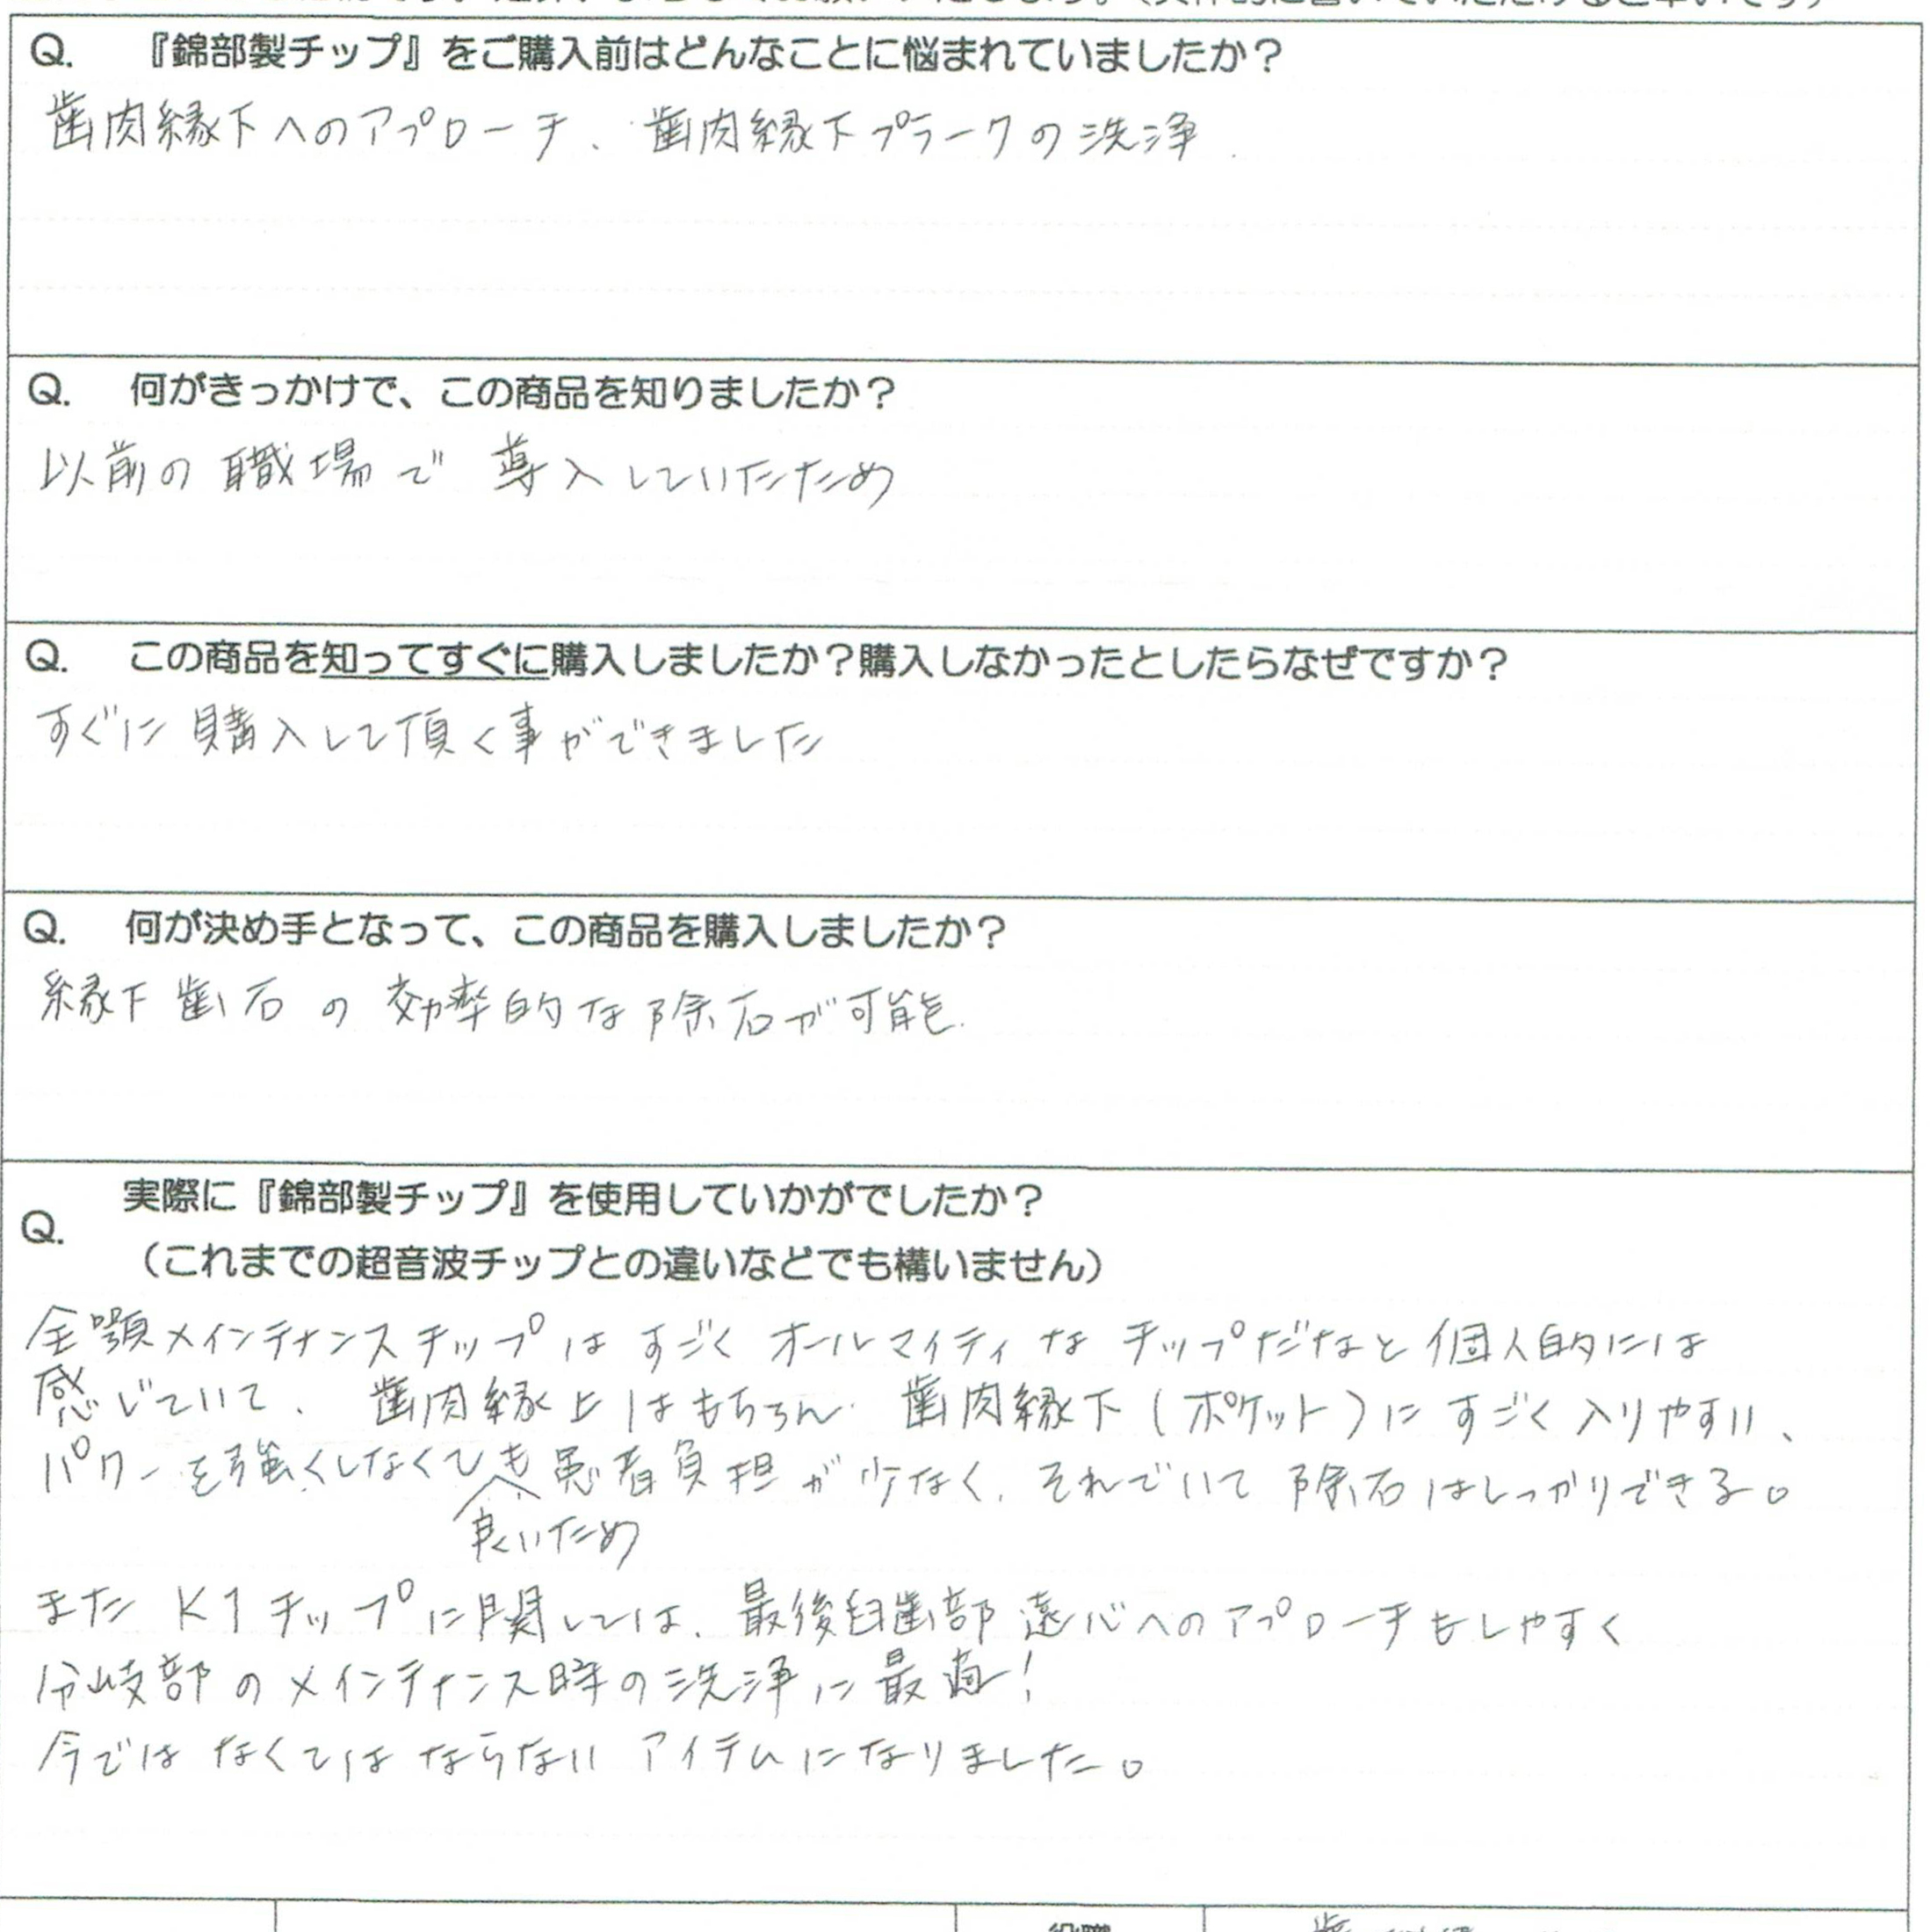 Q. 『錦部製チップ』をご購入前はどんなことに悩まれていましたか？
歯肉縁下へのアプローチ、歯肉縁下プラークの洗浄.
Q. 何がきっかけで、この商品を知りましたか？
以前の職場で導入していたため
Q. この商品を知ってすぐに購入しましたか？購入しなかったとしたらなぜですか？
すぐに購入して頂く事ができました
Q. 何が決め手となって、この商品を購入しましたか？
縁下歯石の効率的な除石が可能.
Q. 実際に『錦部製チップ』を使用していかがでしたか？
（これまでの超音波チップとの違いなどでも構いません）
全顎メインテナンスチップはすごくオールマイティなチップだなと個人的には
感じていて、歯肉縁上はもちろん歯肉縁下(ポケット)にすごく入りやすい、
パワーを強くしなくても患者負担が少なく、それでいて除石はしっかりできる。
良いため
またK1チップに関しては、最後臼歯部遠心へのアプローチもしやすく
分岐部のメインテナンス時の洗浄に最適！
今ではなくてはならないアイテムになりました。
役職